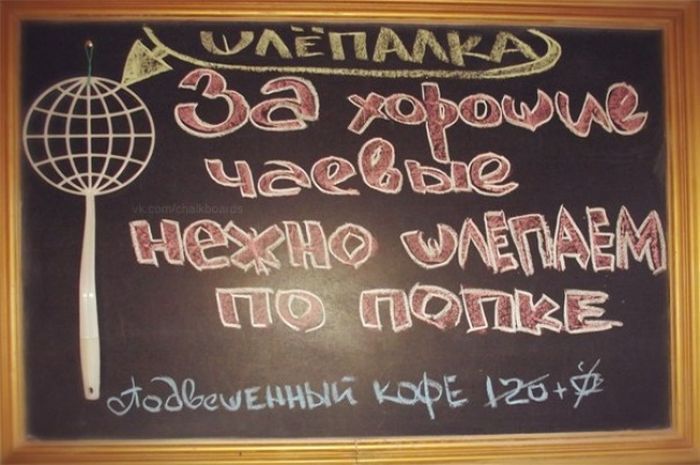 ШЛЁПАЛКА
За хорошие
чаевые
vk.com/chalkboards
нежно шлепаем
по попке
Подвешенный кофе 120+